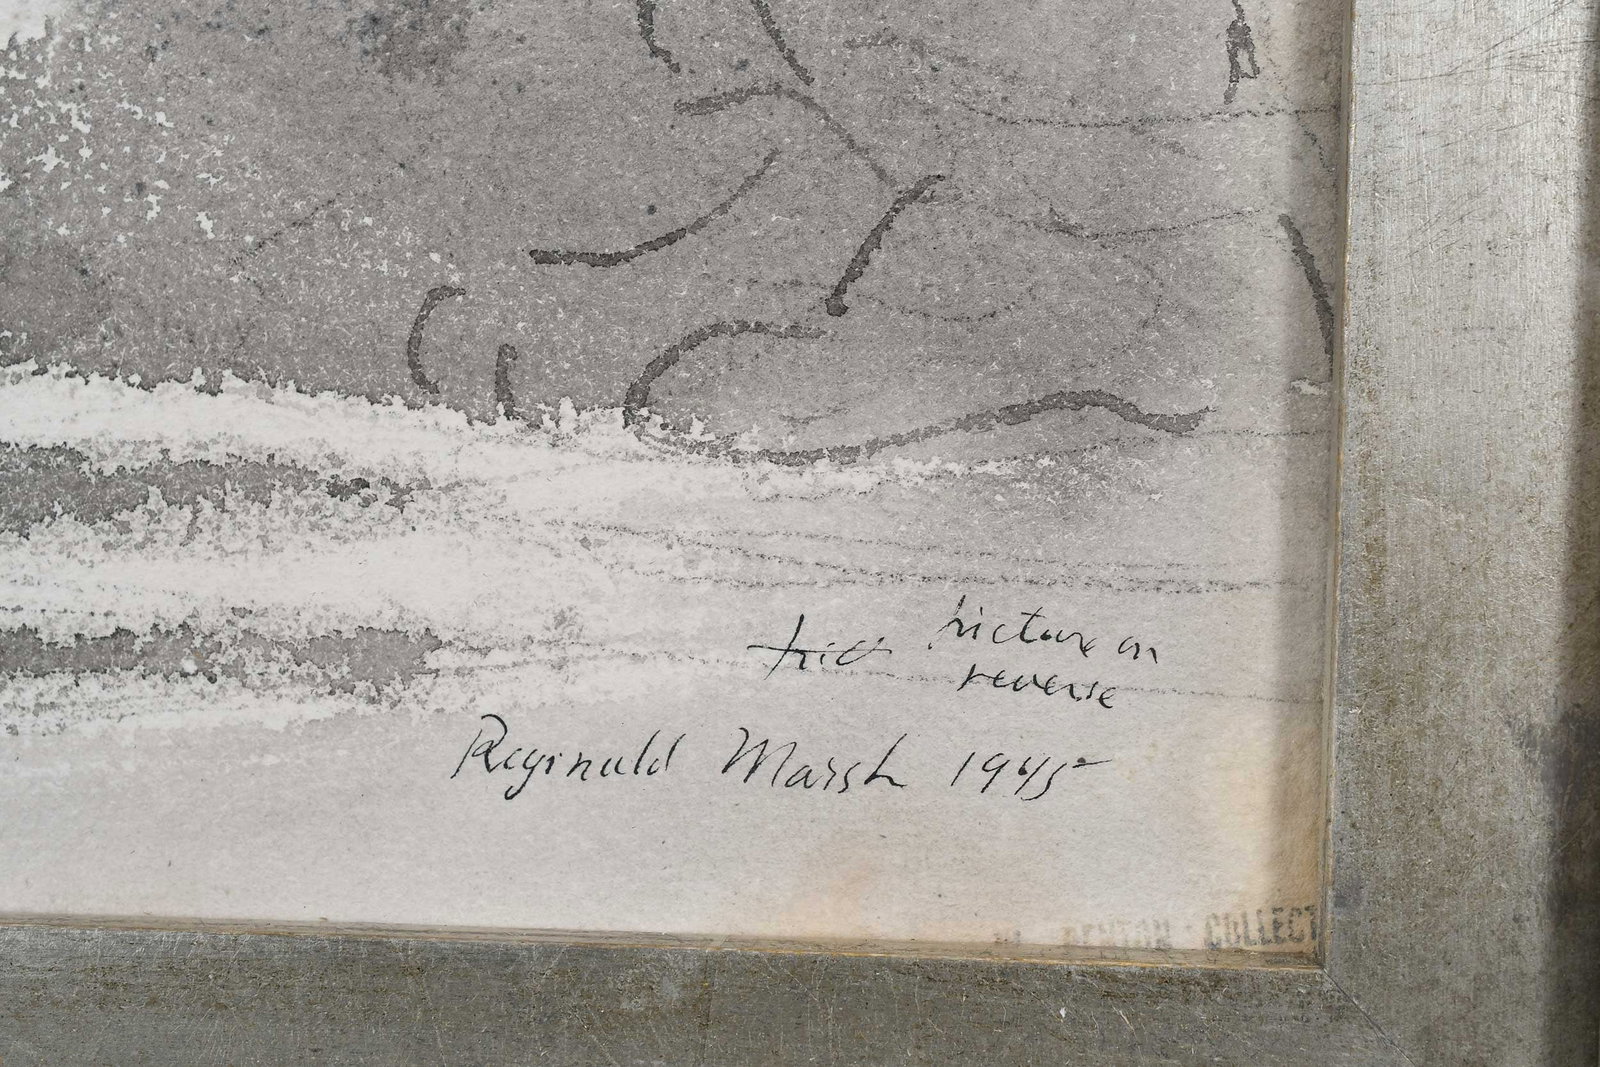 picture on
reverse
Reginald Marsh 1945
COLLECT